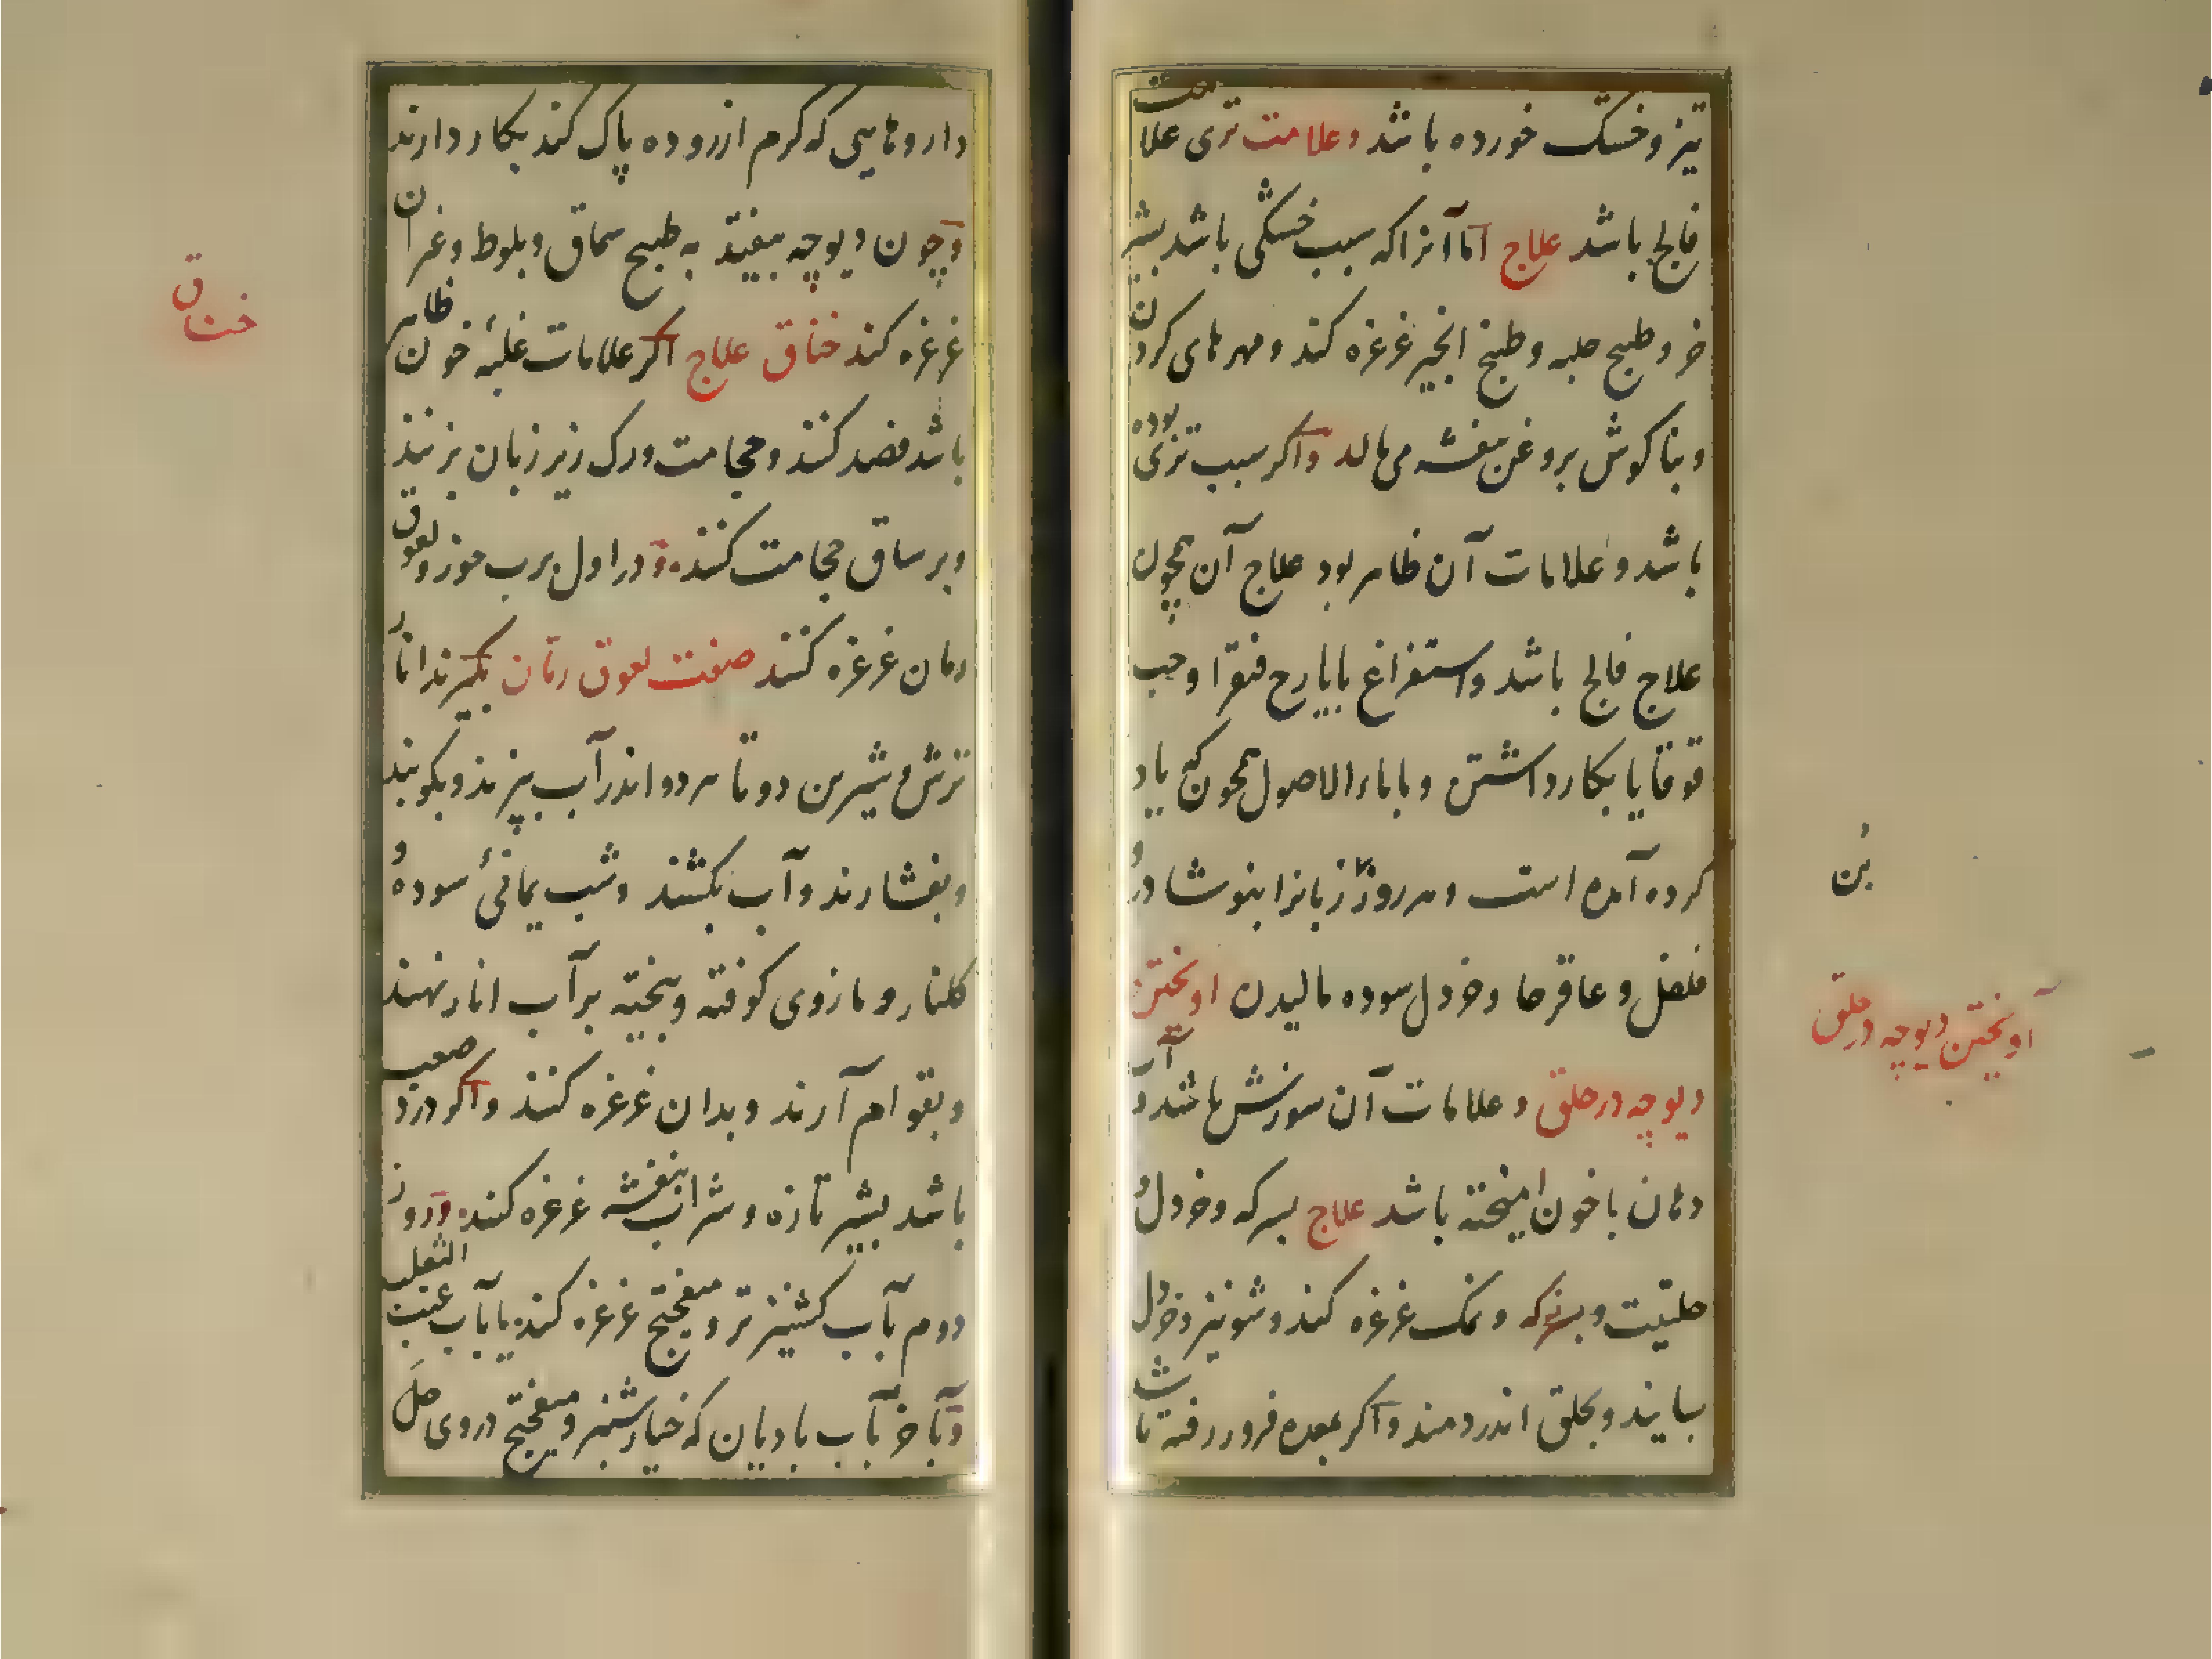 تیز و خشک خورده باشد و علامت تری علامت
فالج باشد علاج اما آنرا که سبب خشکی باشد بشیر
خر و طبیخ حلبه و طبیخ انجیر غرغره کند و مهرهای گردن
و بناگوش بروغن بنفشه می مالد و اگر سبب تری بوده
باشد و علامات آن ظاهر بود علاج آن همچون
علاج فالج باشد و استفراغ بایارج فیقرا و حب
قوقایا بکار داشتن و با ماء الاصول همچون که یاد
کرده آمده است و هر روز زبانرا بنوشادر و
فلفل و عاقرقرحا و خردل سوده مالیدن اویختن
دیوچه در حلق و علامات آن سوزش باشد و آب
دهان با خون امیخته باشد علاج بسرکه و خردل و
حلتیت و بسرکه و نمک غرغره کند و شونیز و خردل
بسایند و بحلق اندر دمند و اگر بمعده فرو رفته باشد
بن
آویختن دیوچه در حلق
داروهایی که کرم از روده پاک کند بکار دارند
و چون دیوچه بیفتد به طبیخ سماق و بلوط و غران
غرغره کند خناق علاج اگر علامات غلبه خون ظاهر
باشد فصد کنند و حجامت و رگ زیر زبان بزنند
و بر ساق حجامت کنند و در اول برب جوز و لعوق
رمان غرغره کنند صفت لعوق رمان بگیرند انار
ترش و شیرین دو تا هر دو اندر آب بپزند و بکوبند
و بفشارند و آب بکشند و شب یمانی سوده و
گلنار و مازوی کوفته و بیخته بر آب انار نهند
و بقوام آرند و بدان غرغره کنند و اگر درد صعب
باشد بشیر تازه و شراب بنفشه غرغره کند و روز
دوم بآب کشنیز تر و میفختج غرغره کند یا بآب عنب الثعلب
و بآخر بآب بادیان که خیارشنبر و میفختج در وی حل
خناق